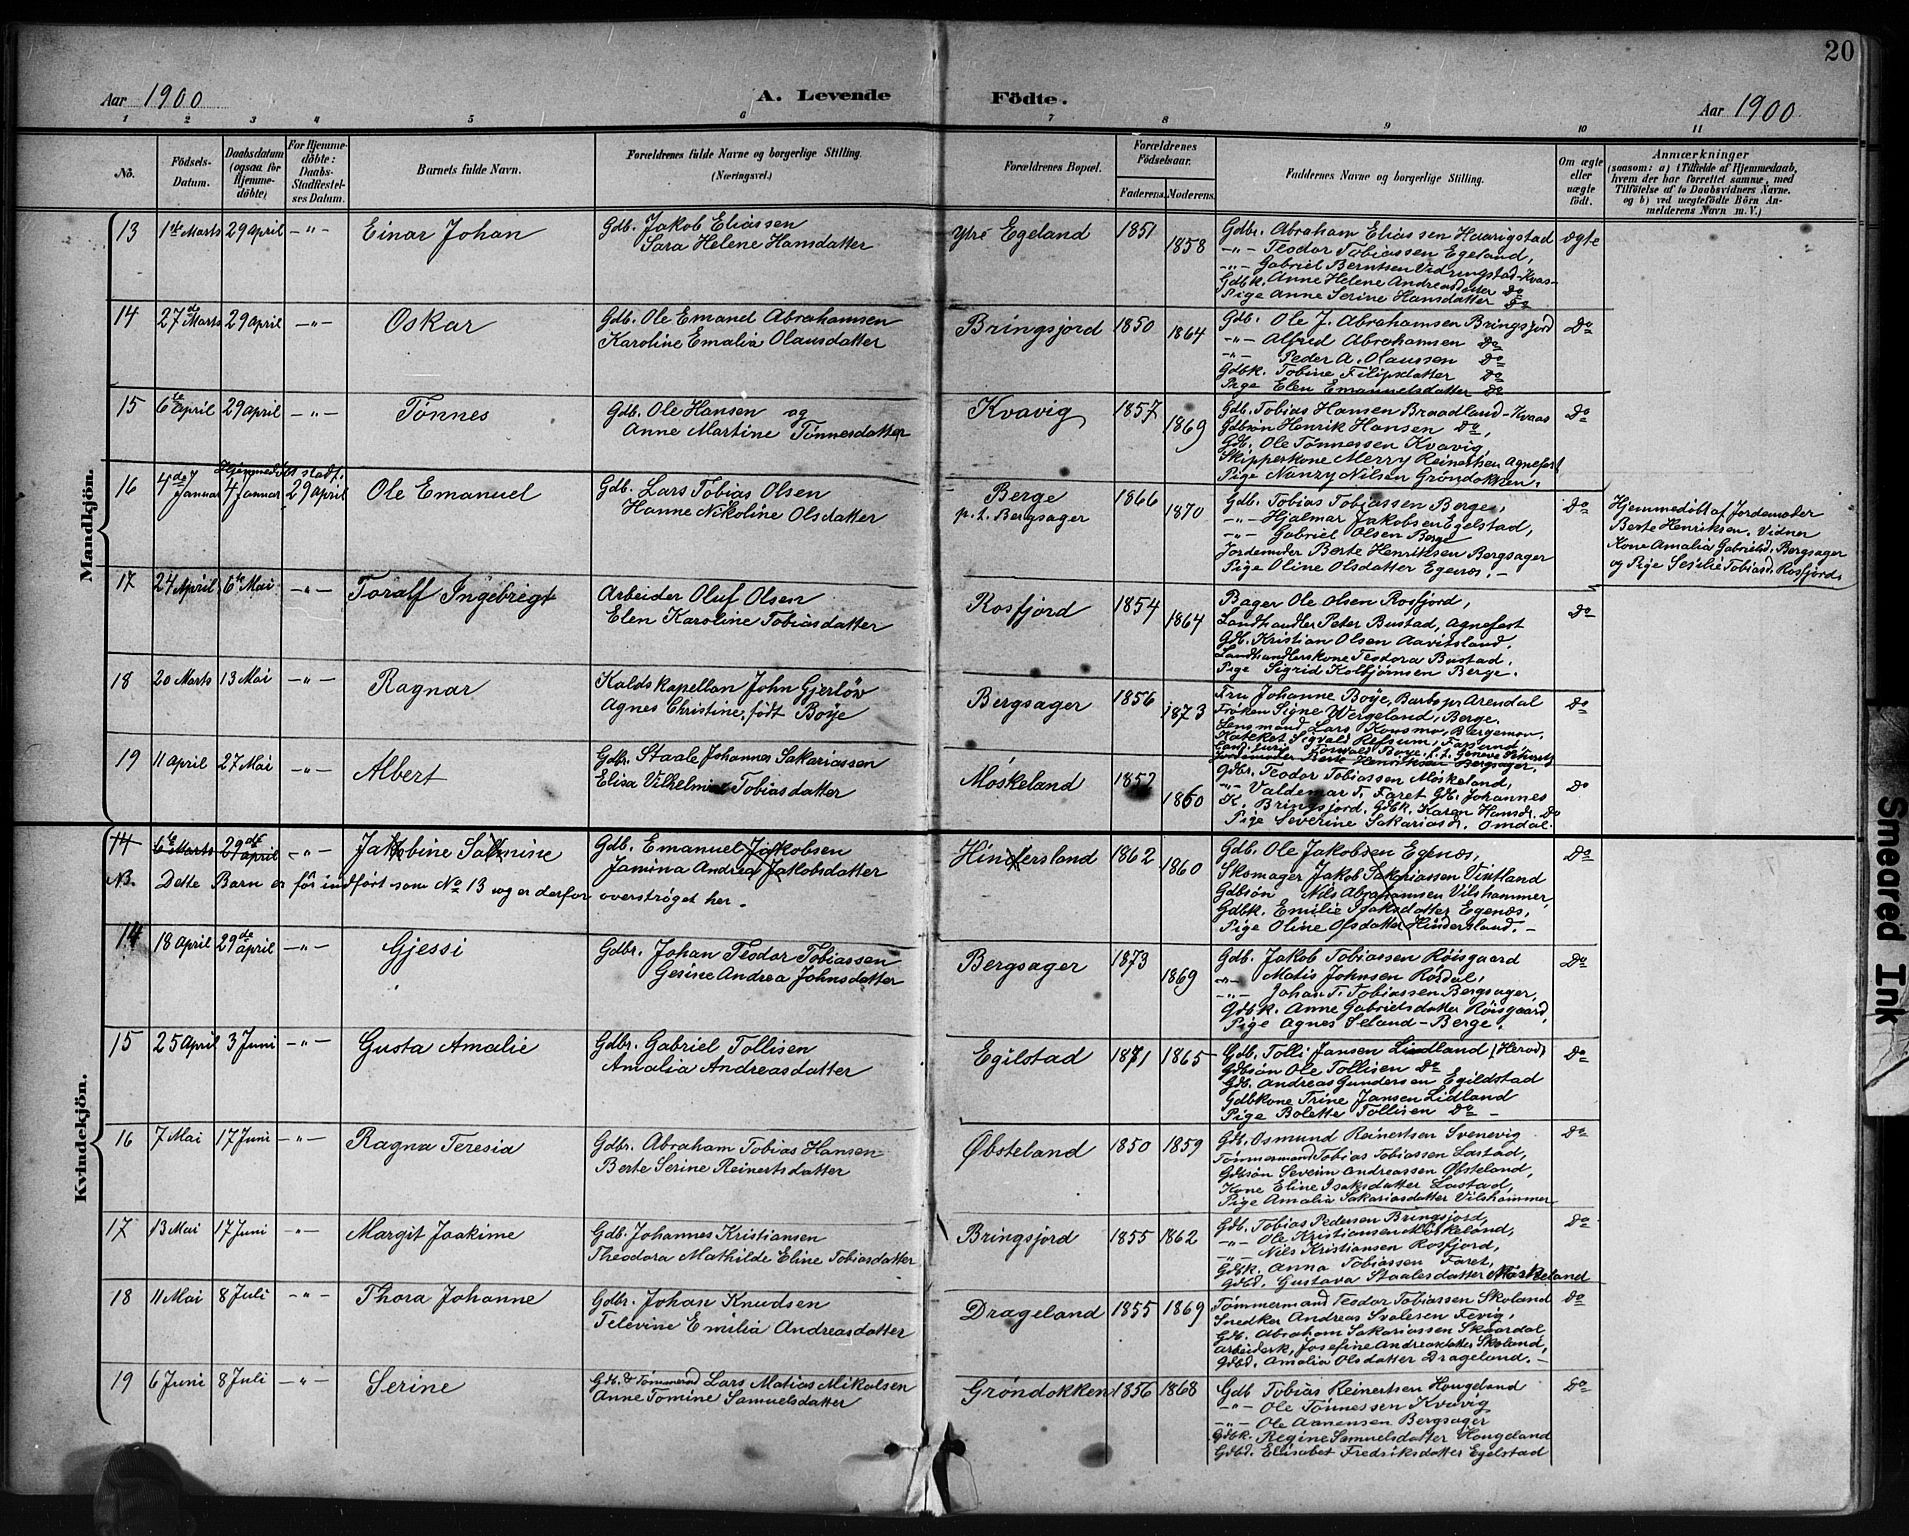 20
Aar 1900
A. Levende Födte.
Aar 1900
1 2 3 4 5 6 7 8 9 10 11
No.
Födsels-Datum.
Daabsdatum (ogsaa for Hjemmedöbte)
For Hjemmedöbte: Daabs-Stadfæstelses Datum.
Barnets fulde Navn.
Forældrenes fulde Navne og borgerlige Stilling. (Næringsvei.)
Forældrenes Bopæl.
Forældrenes Födselsaar.
Faderens. Moderens.
Faddernes Navne og borgerlige Stilling.
Om ægte eller uægte födt.
Anmærkninger
(saasom: a) i Tilfælde af Hjemmedaab, hvem der har forrettet samme, med Tilföielse af to Daabsvidners Navne. og b) ved uægtefödte Börn Anmelderens Navn m. V.)
Mandkjön.
13 1ste Marts 29 April -"- Einar Johan
Gdb. Jakob Eliassen
Sara Helene Hansdatter
Ytre Egeland 1851 1858
Gdbr. Abraham Eliassen Haarigstad
-"- Teodor Tobiassen Egeland,
-"- Gabriel Berntsen Vidringstad-Kvas-
Gdbk. Anne Helene Andreasdatter Do
Pige Anne Serine Hansdatter Do
ægte
14 27de Marts 29 April -"- Oskar
Gdb. Ole Emand Abrahamsen
Karoline Emalia Olausdatter
Bringsjord 1850 1864
Gdb. Ole J. Abrahamsen Bringsjord
-"- Alfred Abrahamsen Do
-"- Peder A. Olaussen Do
Gdbk. Tobine Filipsdatter Do
Pige Elen Emanuelsdatter Do
Do
15 6te April 29 April -"- Tønnes
Gdb. Ole Hansen og
Anne Martine Tønnesdatter
Kvavig 1857 1869
Gdb. Tobias Hansen Braadland-Kvaas
Gdbsøn Henrik Hansen Do,
Gdb. Ole Tønnessen Kvavig,
Skipperkone Merry Reinertsen Agnefest
Pige Nanzy Nilsen Grøndokken.
Do
16 4de Januar Hjemmedøbt 4 Januar stadf. 29 April Ole Emanuel
Gdb. Lars Tobias Olsen
Hanne Nikoline Olsdatter
Berge
p. t. Bergsager 1866 1870
Gdb. Tobias Tobiassen Berge,
-"- Hjalmar Jakobsen Egelstad,
-"- Gabriel Olsen Berge
Jordemoder Berte Henriksen Bergsager
Pige Oline Olsdatter Egenæs. -
Do
Hjemmedøbt af Jordemoder
Berte Henriksen. Vidner
Kone Amalia Gabrielsd. Bergsager
og Pige Sesilie Tobiasd. Rosfjord.
17 24 April 6te Mai -"- Toralf Ingebrigt
Arbeider Oluf Olsen
Elen Karoline Tobiasdatter
Rosfjord 1854 1864
Bager Ole Olsen Rosfjord,
Landhandler Peter Bustad, Agnefest
Gdb. Kristian Olsen Aavitsland,
Landhandlerskone Teodora Bustad,
Pige Sigrid Kolbjørnsen Berge.
Do
18 20 Marts 13 Mai -"- Ragnar
Kaldskapellan John Gjerløv
Agnes Christine, født Boye
Bergsager 1856 1873
Fru Johanne Boye, Barbo pr Arendal
Frøken Signe Wergeland, Berge.
Lensmand Lars Kousmo, Bergemon,
Kateket Sigvald Refsum, Farsund,
Cand. juris Torvald Boye, p. t. Geneve Schweitz
Jordemoder Berte Henriksen Bergsager.
Do
19 11 April 27 Mai -"- Albert
Gdbr. Staale Johannes Sakariassen
Elisa Vilhelmine Tobiasdatter
Møskeland 1857 1860
Gdbr. Teodor Tobiassen Møskeland,
-"- Valdemar T. Faret Gb. Johannes
K. Bringsjord. Gdbk. Karen Hansd. Do
Pige Severine Sakariasd. Omdal.
Do
Kvindekjön.
14 6te Marts 29de April -"- Jakobine Salmine
Gdb. Emanuel Jakobsen
Jamina Andrea Jakobsdatter
Hindersland 1862 1860
Gdb. Ole Jakobsen Egenæs,
Skomager Jakob Sakariassen Vintland
Gdbsøn Nils Abrahamsen Vilshammer,
Gdbk. Emilie Isaksdatter Egenæs,
Pige Oline Olsdatter Hindersland. -
Do
NB. Dette Barn er før indført som No 13 og er derfor overstrøget her.
14 18 April 29de April -"- Gjessi
Gdbr. Johan Teodor Tobiassen
Gesine Andrea Johnsdatter
Bergsager 1873 1869
Gdb. Jakob Tobiassen Røisgaard
-"- Matis Johnsen Rørdal,
-"- Johan T. Tobiassen Bergsager,
Gdbk. Anne Gabrielsdatter Røisgaard,
Pige Agnes Seland-Berge.
Do
15 25 April 3 Juni -"- Gusta Amalie
Gdbr. Gabriel Tollisen
Amalia Andreasdatter
Egilstad 1871 1865
Gdb. Tolli Jansen Lindland (Herod)
Gdbsøn Ole Tollisen Do
Gdb. Andreas Gundersen Egildstad
Gdbkone Trine Jansen Lidland
Pige Bolette Tollisen Do -
Do
16 7 Mai 17 Juni -"- Ragna Teresia
Gdbr. Abraham Tobias Hansen
Berte Serine Reinertsdatter
Øbsteland 1850 1859
Gdb. Osmund Reinertsen Svenevig
Tømmermand Tobias Tobiassen Lastad,
Gdbsøn Severin Andreassen Øbsteland,
Kone Eline Isaksdatter Lastad,
Pige Amalia Sakariasdatter Vilshammer
Do
17 13 Mai 17 Juni -"- Margit Joakime
Gdb. Johannes Kristiansen
Theodora Mathilde Eline Tobiasdatter
Bringsjord 1855 1862
Gdb. Tobias Pedersen Bringsjord,
-"- Ole Kristiansen Møskeland,
-"- Nils Kristiansen Rosfjord,
Gdbk. Anna Tobiassen Faret,
Gdbd. Gustava Staalesdatter Møskeland
Do
18 11 Mai 8 Juli -"- Thora Johanne
Gdbr. Johan Knudsen
Televine Emilia Andreasdatter
Drageland 1855 1869
Tømmermand Teodor Tobiassen Skoland
Snedker Andreas Svalesen Fevig,
Gdb. Abraham Sakariassen Skaardal,
Arbeiderk. Josefine Andreasdatter Skoland,
Gdbd. Amalia Olsdatter Drageland. -
Do
19 6 Juni 8 Juli -"- Serine
Gdb. & Tømmermd Lars Matias Mikalsen
Anne Tomine Samuelsdatter
Grøndokken 1856 1868
Gdb Tobias Reinertsen Hougeland
-"- Ole Tønnessen Kvavig
-"- Ole Aanensen Bergsager
Gdbk. Regine Samuelsdatter Hougeland
Gdbd. Elisabet Fredriksdatter Egelstad
Do
Smeared Ink